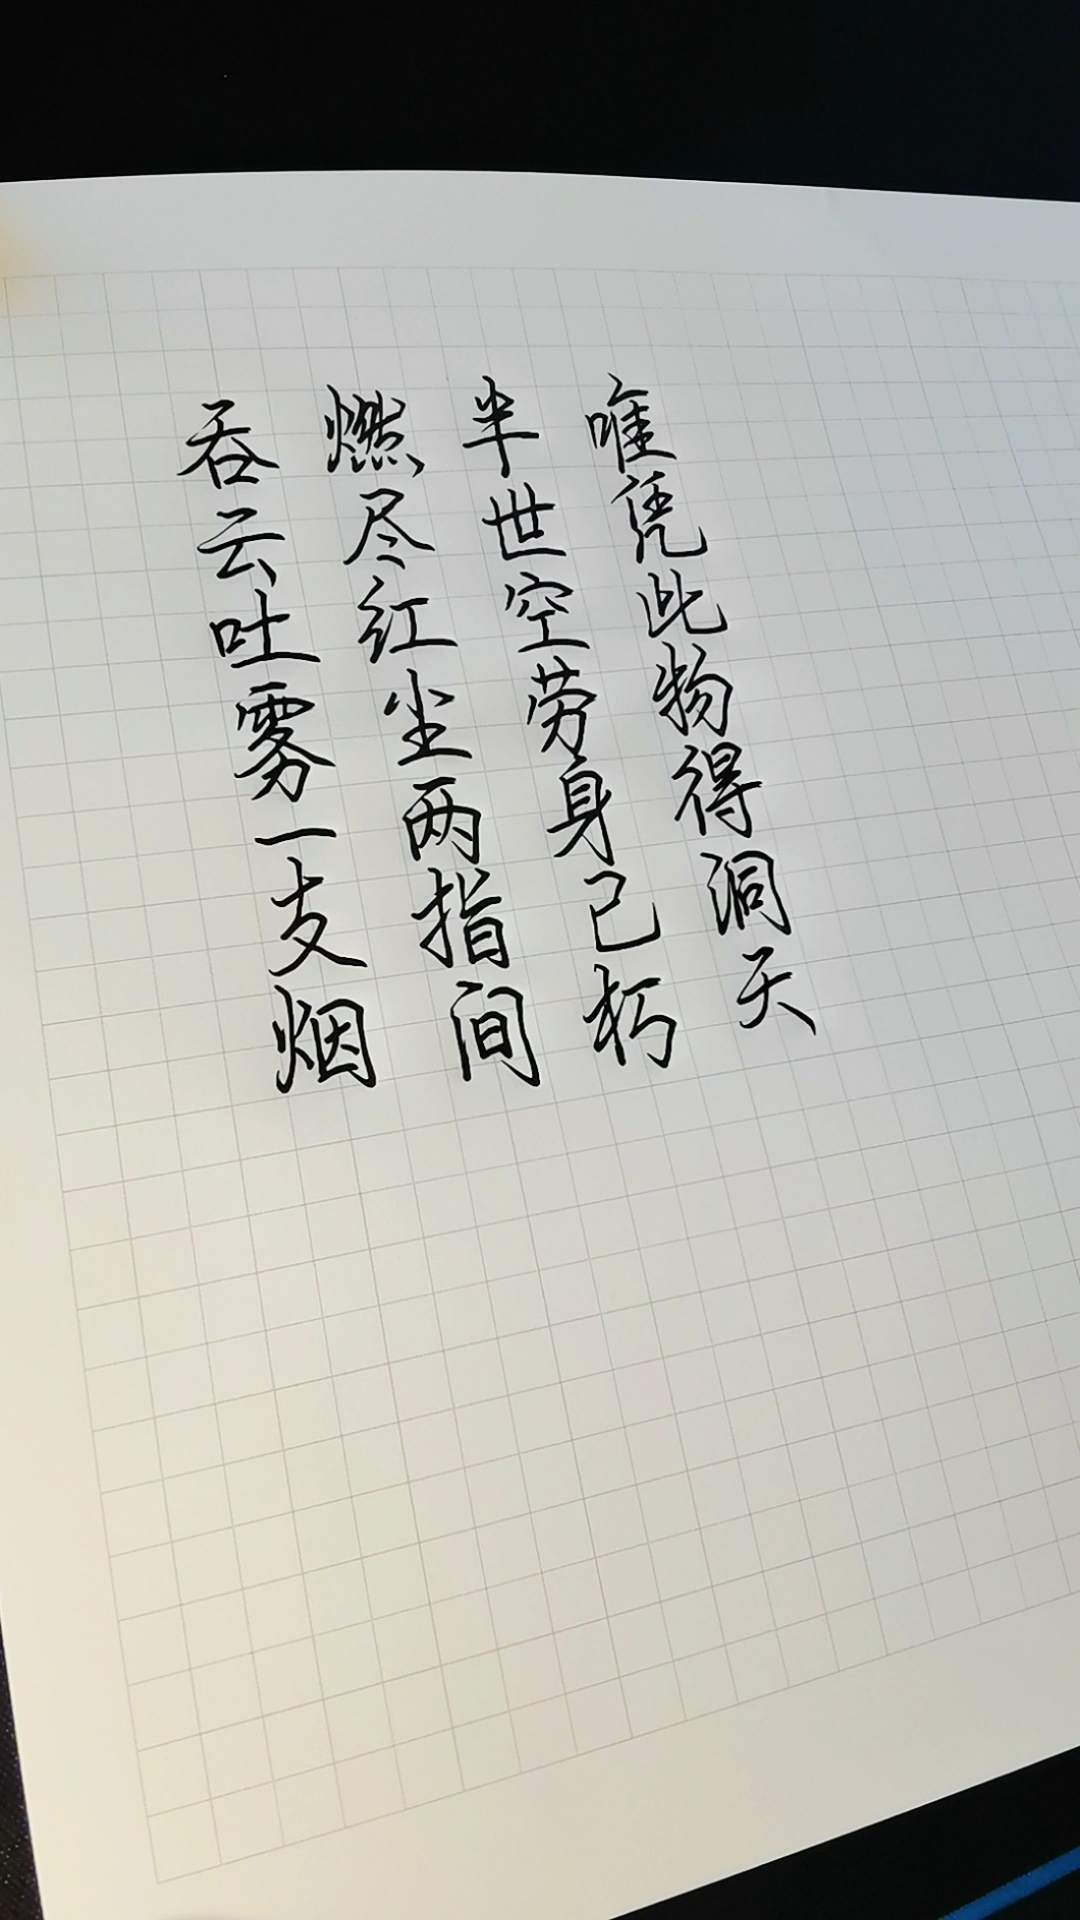 吞云吐雾一支烟
燃尽红尘两指间
半世空劳身已朽
唯凭此物得洞天